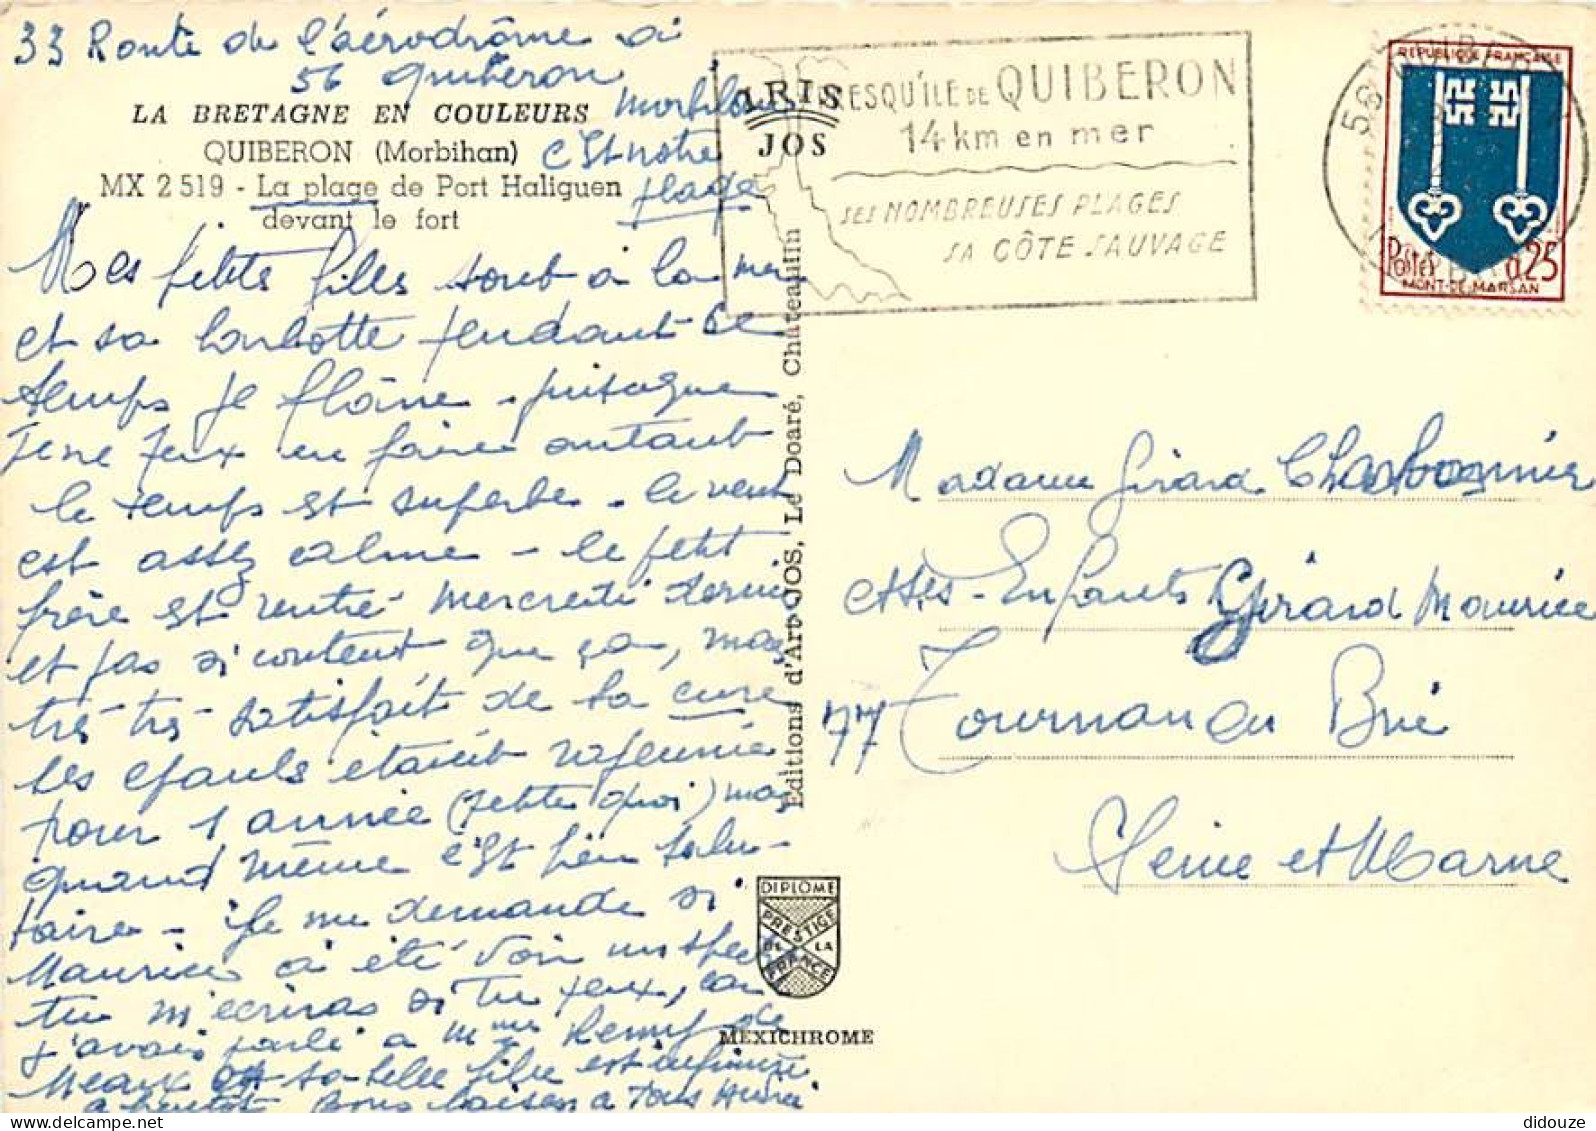 33 Route de l'aérodrôme à
56 Quiberon
Morbihan
c'est notre
plage
LA BRETAGNE EN COULEURS
QUIBERON (Morbihan)
MX 2519 - La plage de Port Haliguen
devant le fort
Mes petits filles sont à la mer
et sa barbotte pendant ce
temps je flâne - puisque
je ne peux en faire autant
le temps est superbe - le vent
est assez calme - le petit
frère est rentré mercredi dernier
et pas si content que ça, mais
très très satisfait de sa cure
ses épauls étaient rajeunie
pour 1 année (petite quoi) mais
quand même c'est bien salu-
taire - je me demande si
Maurice a été voir un spec
tu m'écriras si tu peux, car
j'avais parlé a Mme Remy de
Meaux sa belle fille est infirmière
a bientôt Bons baisers a Tous
IRIS
JOS
PRESQU'ILE DE QUIBERON
14 km en mer
SES NOMBREUSES PLAGES
SA CÔTE SAUVAGE
56
REPUBLIQUE FRANÇAISE
Postes 0,25
MONT-DE-MARSAN
Editions d'Art JOS, Le Doaré, Chateaulin
Madame Girard Charbonnier
et ses Enfants Girard Maurice
77 Tournan en Brie
Seine et Marne
DIPLOME
PRESTIGE
DE LA
FRANCE
MEXICHROME
didouze